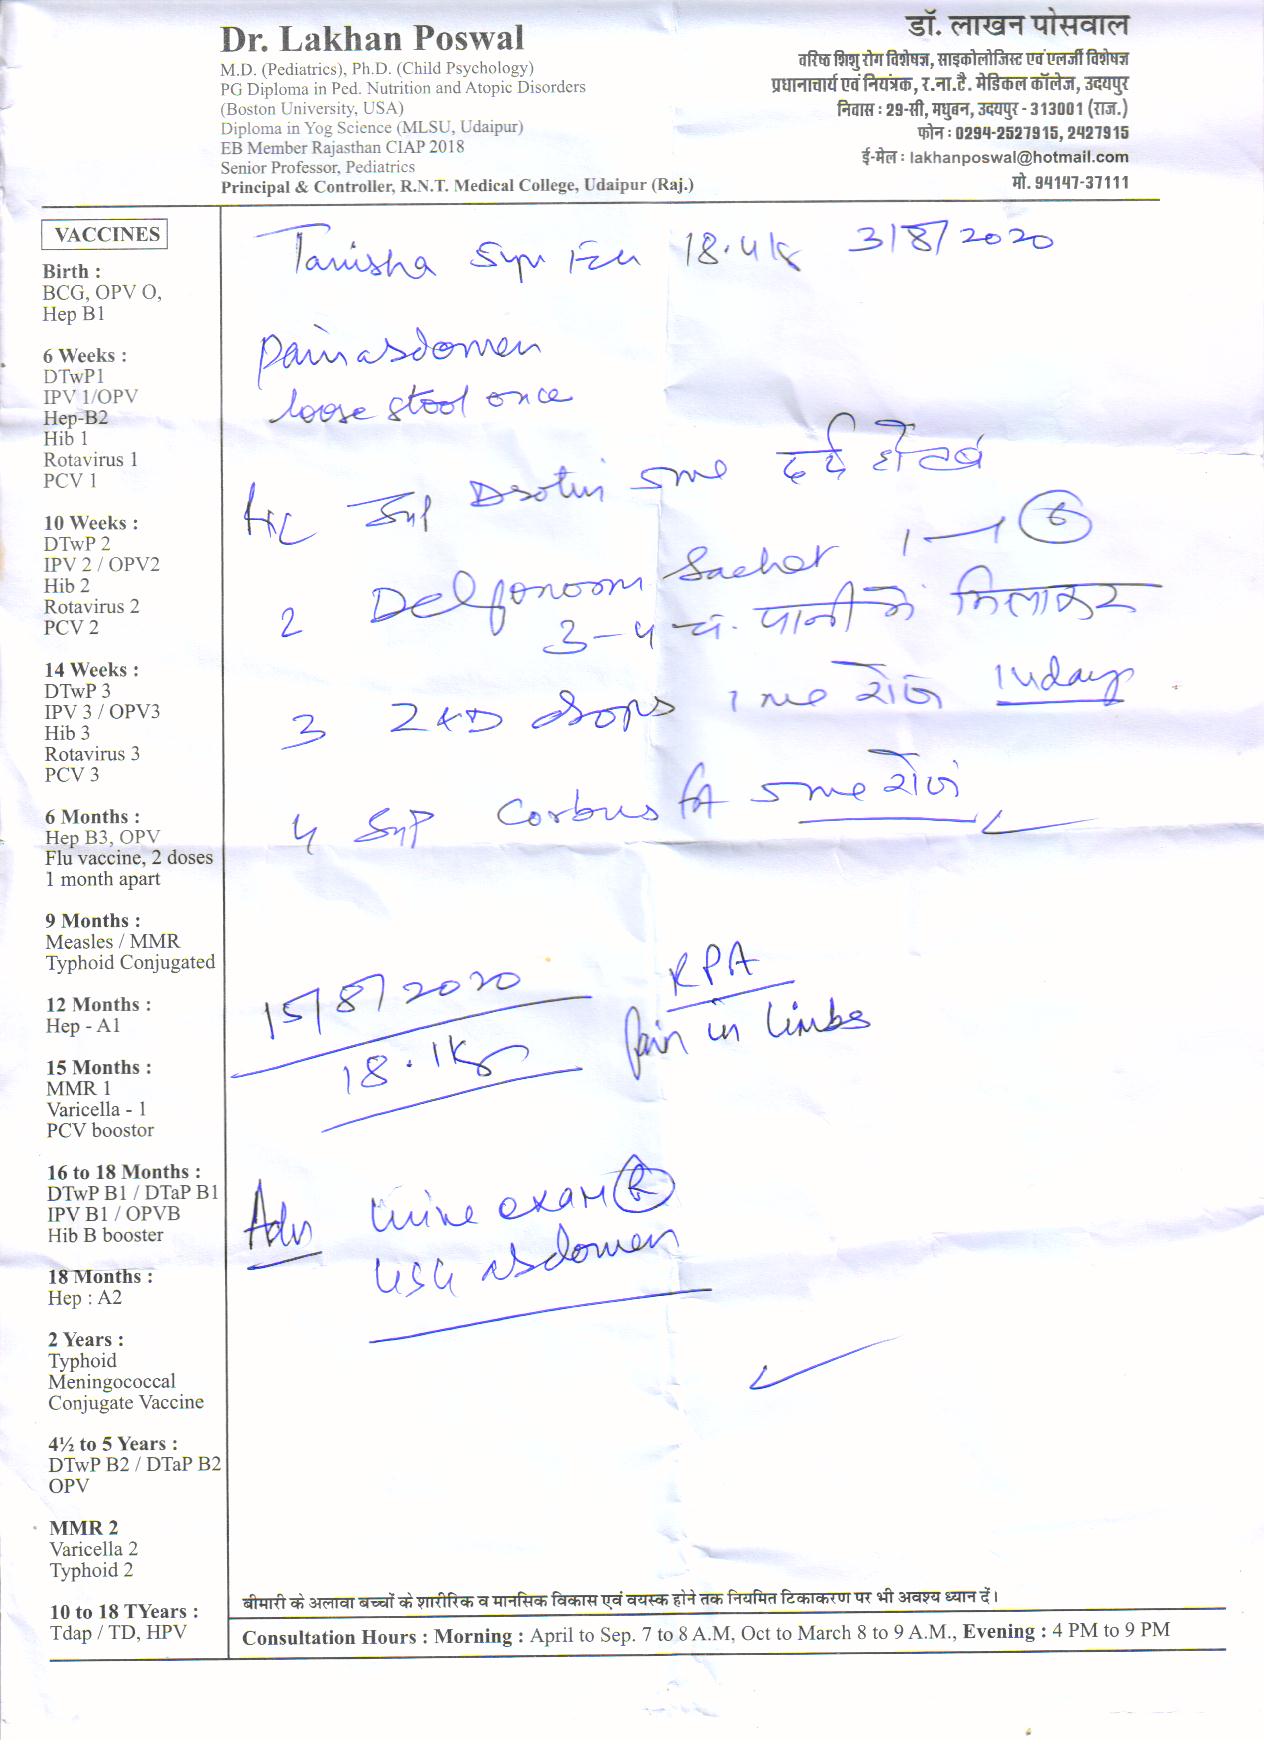 Dr. Lakhan Poswal
M.D. (Pediatrics), Ph.D. (Child Psychology)
PG Diploma in Ped. Nutrition and Atopic Disorders
(Boston University, USA)
Diploma in Yog Science (MLSU, Udaipur)
EB Member Rajasthan CIAP 2018
Senior Professor, Pediatrics
Principal & Controller, R.N.T. Medical College, Udaipur (Raj.)
डॉ. लाखन पोसवाल
वरिष्ठ शिशु रोग विशेषज्ञ, साइकोलोजिस्ट एवं एलर्जी विशेषज्ञ
प्रधानाचार्य एवं नियंत्रक, र.ना.टै. मेडिकल कॉलेज, उदयपुर
निवास : 29-सी, मधुबन, उदयपुर - 313001 (राज.)
फोन : 0294-2527915, 2427915
ई-मेल : lakhanposwal@hotmail.com
मो. 94147-37111
VACCINES
Birth :
BCG, OPV O,
Hep B1
6 Weeks :
DTwP1
IPV 1/OPV
Hep-B2
Hib 1
Rotavirus 1
PCV 1
10 Weeks :
DTwP 2
IPV 2 / OPV2
Hib 2
Rotavirus 2
PCV 2
14 Weeks :
DTwP 3
IPV 3 / OPV3
Hib 3
Rotavirus 3
PCV 3
6 Months :
Hep B3, OPV
Flu vaccine, 2 doses
1 month apart
9 Months :
Measles / MMR
Typhoid Conjugated
12 Months :
Hep - A1
15 Months :
MMR 1
Varicella - 1
PCV boostor
16 to 18 Months :
DTwP B1 / DTaP B1
IPV B1 / OPVB
Hib B booster
18 Months :
Hep : A2
2 Years :
Typhoid
Meningococcal
Conjugate Vaccine
4½ to 5 Years :
DTwP B2 / DTaP B2
OPV
MMR 2
Varicella 2
Typhoid 2
10 to 18 TYears :
Tdap / TD, HPV
Tanisha 5yr 18.4 3/8/2020
Pain abdomen
loose stool once
Syp 5ml दर्द हो तब
2 Sachet 1—1 6
3-4 च. पानी में मिलाकर
3 Z&D drops 1 ml रोज 14days
4 Syp 5ml रोज
15/8/2020
18.1kg
RPA
Pain in limbs
Adv Urine exam R
USG abdomen
बीमारी के अलावा बच्चों के शारीरिक व मानसिक विकास एवं वयस्क होने तक नियमित टिकाकरण पर भी अवश्य ध्यान दें।
Consultation Hours : Morning : April to Sep. 7 to 8 A.M, Oct to March 8 to 9 A.M., Evening : 4 PM to 9 PM